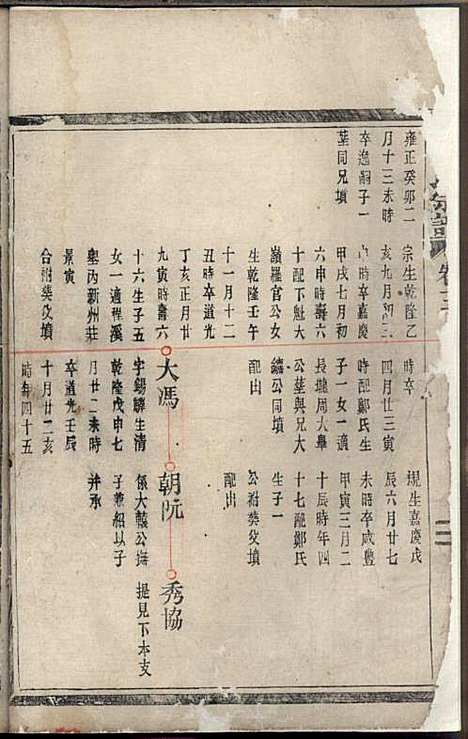 雍正癸卯二
月十三未時
卒過嗣子一
葬同兄墳
宗生乾隆乙
亥九月初三
時卒嘉慶
甲戌七月初
六申時壽六
十配下魁大
嶺羅官公女
生乾隆壬午
十一月十二
丑時卒道光
丁亥正月廿
九寅時壽六
十六生子五
女一適程溪
墾丙新州莊
景寅
合祔葵坟墳
時卒
四月廿三寅
時配鄭氏生
子一女一適
長瓏周大舉
公葬與兄大
繡公同墳
配出
大馮
字錫驊生清
乾隆戊申七
月廿二未時
卒道光壬辰
十月廿二亥
時年四十五
規生嘉慶戊
辰六月廿七
未時卒咸豐
甲寅三月二
十辰時年四
十七配鄭氏
生子一
公祔葵坟墳
配出
朝阮
係大毅公撫
子兼紹以子
并承
秀協
提見下本支
卷十二